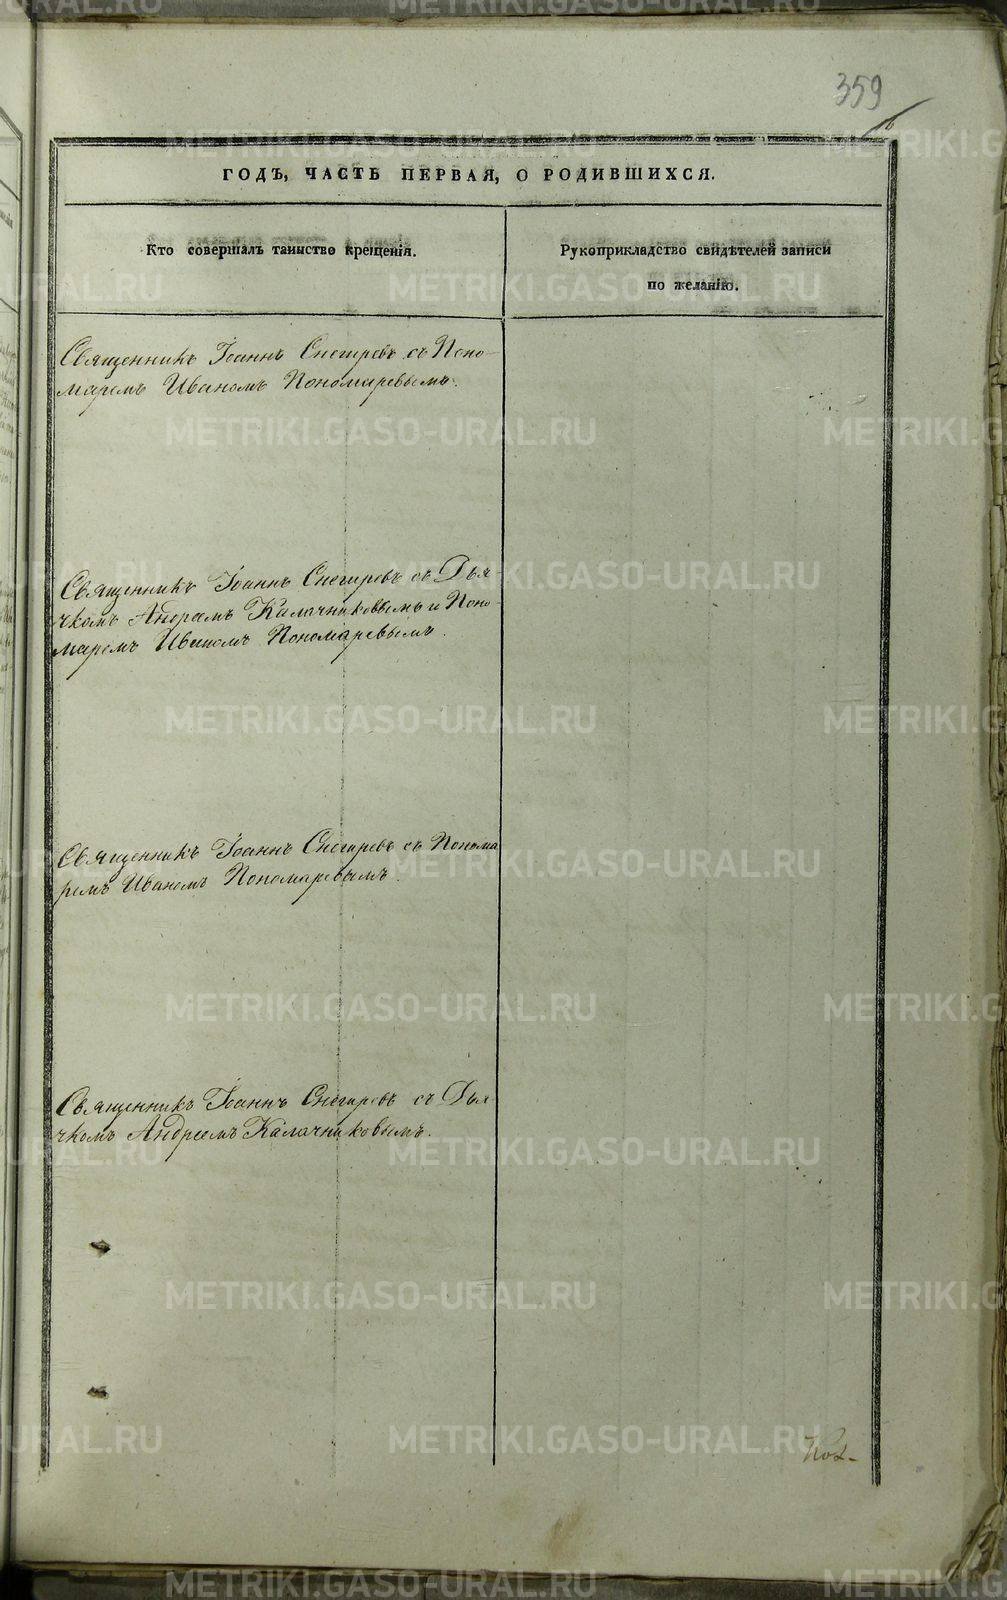 359
ГОДЪ, ЧАСТЬ ПЕРВАЯ, О РОДИВШИХСЯ.
Кто совершалъ таинство крещенія.
Рукоприкладство свидѣтелей записи
по желанію.
Священникъ Іоаннъ Снегиревъ съ Поно-
маремъ Иваномъ Пономаревымъ.
Священникъ Іоаннъ Снегиревъ съ Дья-
чкомъ Андреемъ Калачниковымъ и Поно
маремъ Иваномъ Пономаревымъ.
Священникъ Іоаннъ Снегиревъ съ Понома
ремъ Иваномъ Пономаревымъ.
Священникъ Іоаннъ Снегиревъ съ Дья-
чкомъ Андреемъ Калачниковымъ.
METRIKI.GASO-URAL.RU